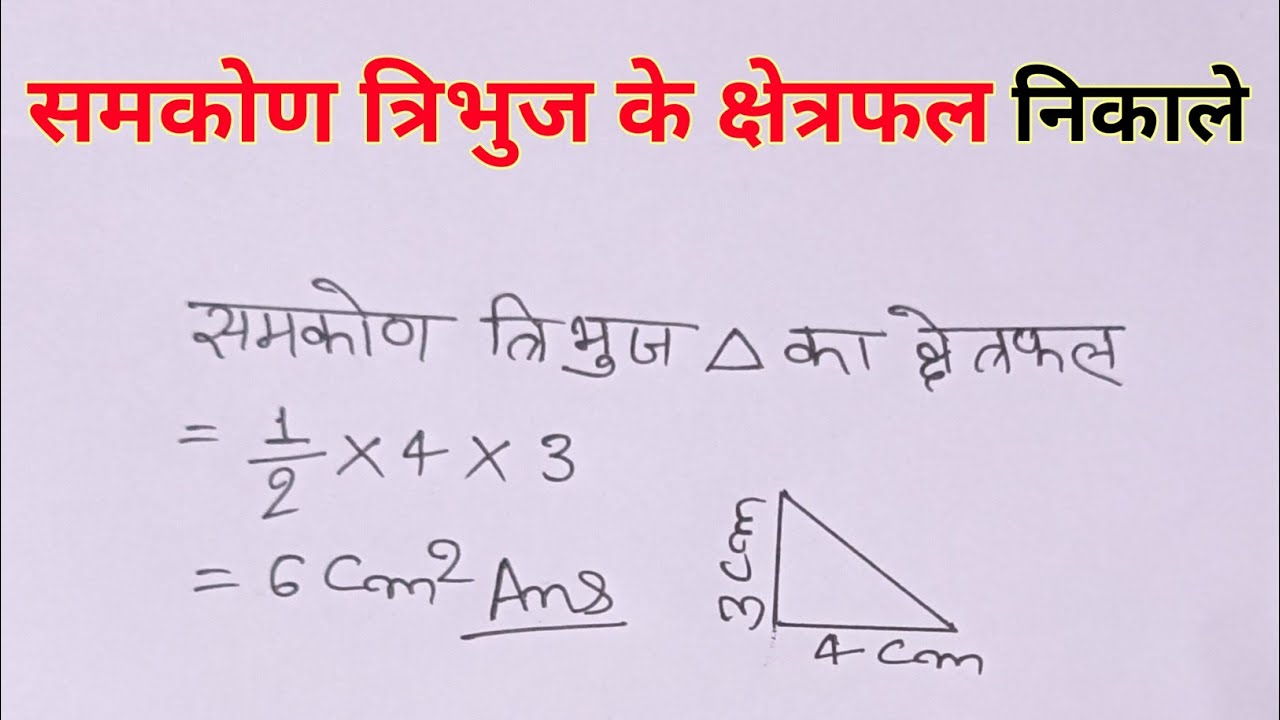 समकोण त्रिभुज के क्षेत्रफल निकाले
समकोण त्रिभुज △ का क्षेत्रफल
= 1/2 × 4 × 3
= 6 Cm² Ans
3 cm
4 cm